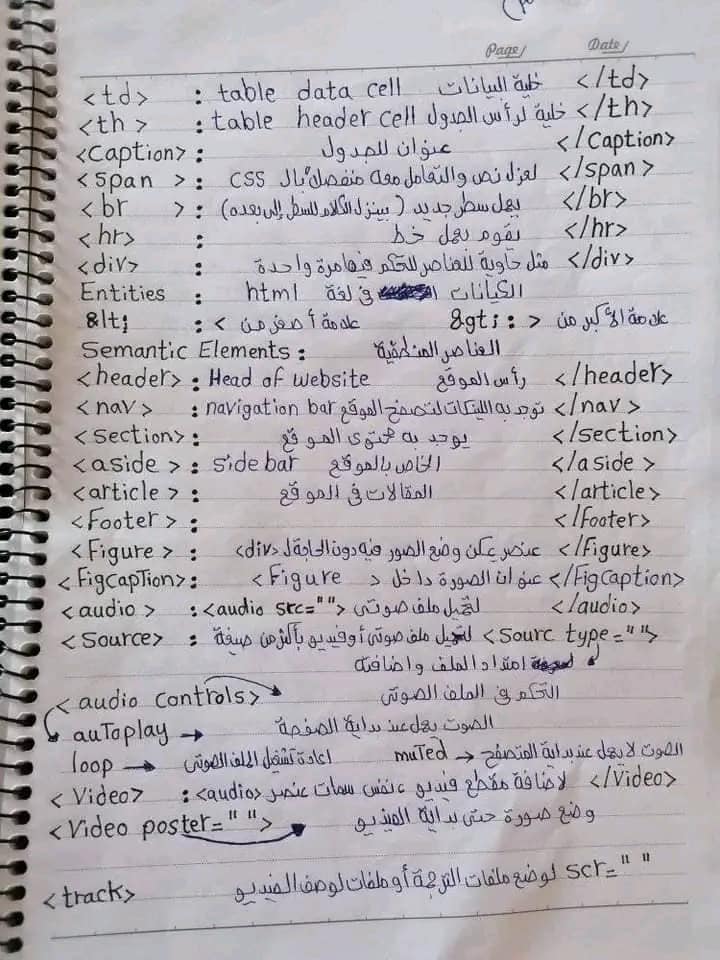 Page/ Date/
<td> : table data cell خلية البيانات </td>
<th> : table header cell خلية لرأس الجدول </th>
<Caption> : عنوان للجدول </Caption>
<span> : لعزل نص والتعامل معه منفصل بال CSS </span>
<br> : يعمل سطر جديد (بينزل الكلام للسطر إلى بعده) </br>
<hr> : يقوم بعمل خط </hr>
<div> : مثل حاوية للعناصر للتحكم فيها مرة واحدة </div>
Entities : الكيانات في لغة html
&lt; : < علامة أصغر من &gt; : > علامة الأكبر من
Semantic Elements : العناصر المنطقية
<header> : Head of website رأس الموقع </header>
<nav> : navigation bar توجد به اللينكات لتصفح الموقع </nav>
<section> : يوجد به محتوى الموقع </section>
<aside> : side bar الخاص بالموقع </aside>
<article> : المقالات في الموقع </article>
<Footer> : </footer>
<Figure> : عنصر يمكن وضع الصور فيه دون الحاجة ل <div> </Figure>
<FigcapTion> : عنوان الصورة داخل < Figure > </Figcaption>
<audio> : <audio src=" "> لتحميل ملف صوتى </audio>
<Source> : لتحميل ملف صوتى أو فيديو بأكثر من صيغة <Sourc type=" ">
امتداد الملف واضافته
< audio controls> التحكم في الملف الصوتى
auToplay → الصوت يعمل عند بداية الصفحة
loop → اعادة تشغيل الملف الصوتى muTed → الصوت لا يعمل عند بداية المتصفح
<Video> : لاضافة مقطع فيديو نفس سمات عنصر <audio> </Video>
<Video poster=" "> وضع صورة حتى بداية الفيديو
<track> لوضع ملفات الترجمة أو ملفات لوصف الفيديو scr=" "